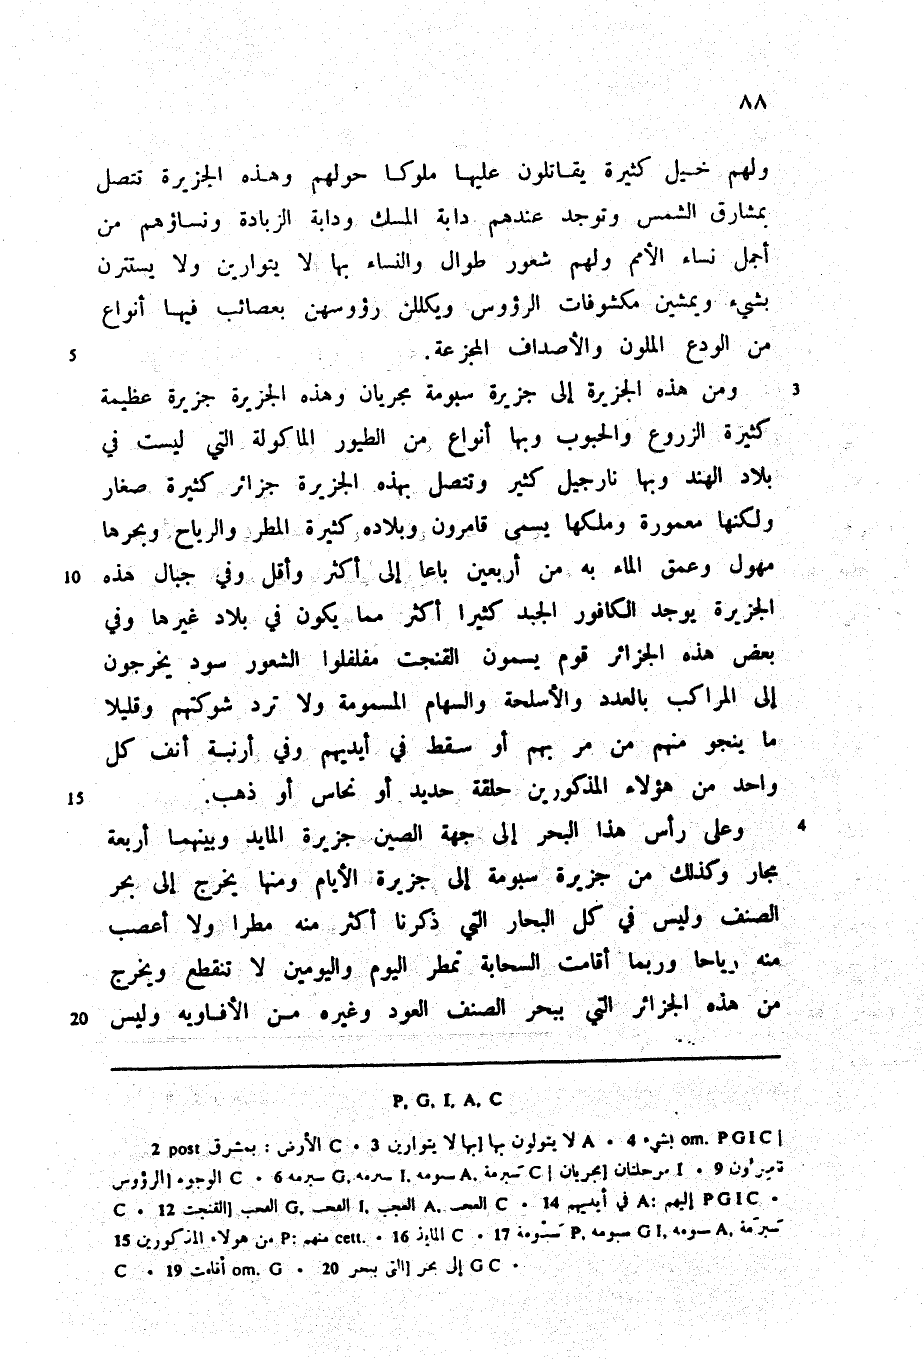 ٨٨
ولهم خيل كثيرة يقاتلون عليها ملوكا حولهم وهذه الجزيرة تتصل
بمشارق الشمس وتوجد عندهم دابة المسك ودابة الزبادة ونساؤهم من
أجمل نساء الأمم ولهم شعور طوال والنساء بها لا يتوارين ولا يستترن
بشيء ويمشين مكشوفات الرؤوس ويكللن رؤوسهن بعصائب فيها أنواع
من الودع الملون والأصداف المجزعة. 5
3 ومن هذه الجزيرة إلى جزيرة سيومة مجريان وهذه الجزيرة جزيرة عظيمة
كثيرة الزروع والحبوب وبها أنواع من الطيور المأكولة التي ليست في
بلاد الهند وبها نارجيل كثير وتتصل بهذه الجزيرة جزائر كثيرة صغار
ولكنها معمورة وملكها يسمى قامرون وبلاده كثيرة المطر والرياح وبحرها
مهول وعمق الماء به من أربعين باعا إلى أكثر وأقل وفي جبال هذه 10
الجزيرة يوجد الكافور الجيد كثيرا أكثر مما يكون في بلاد غيرها وفي
بعض هذه الجزائر قوم يسمون القنجت مفلفلوا الشعور سود يخرجون
إلى المراكب بالعدد والأسلحة والسهام المسمومة ولا ترد شوكتهم وقليلا
ما ينجو منهم من مر بهم أو سقط في أيديهم وفي أرنبة أنف كل
واحد من هؤلاء المذكورين حلقة حديد أو نحاس أو ذهب. 15
4 وعلى رأس هذا البحر إلى جهة الصين جزيرة المايد وبينهما أربعة
مجار وكذلك من جزيرة سيومة إلى جزيرة الأيام ومنها يخرج إلى بحر
الصنف وليس في كل البحار التي ذكرنا أكثر منه مطرا ولا أعصب
منه رياحا وربما أقامت السحابة تمطر اليوم واليومين لا تنقطع ويخرج
من هذه الجزائر التي ببحر الصنف العود وغيره من الأفاويه وليس 20
P, G, I, A, C
2 post بمشرق : الأرض C • 3 لا يتوارين [بها لا يتولون بها A • 4 بشيء om. PGIC |
الرؤوس] الوجوه C • 6
مجريان] مرحلتان I • 9
C • 12 القنجت]
C • 14 في أيديهم A: إليهم PGIC •
15 من هولاء المذكورين P: منهم cett. • 16 C • 17
C • 19 أقامت om. G • 20 التي ببحر] إلى بحر GC •